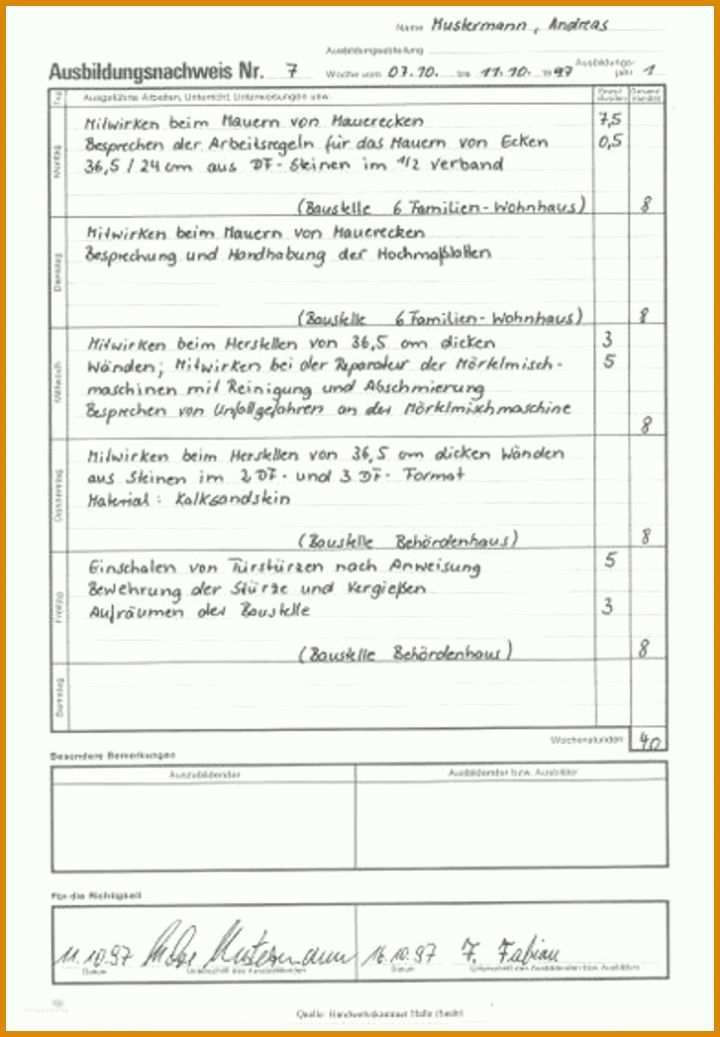 Name Mustermann, Andreas
Ausbildungsabteilung
Ausbildungsnachweis Nr. 7 Woche vom 07.10. bis 11.10. 1997 Ausbildungsjahr 1
Tag Ausgeführte Arbeiten, Unterricht, Unterweisungen usw. Einzelstunden Gesamtstunden
Montag
Mitwirken beim Mauern von Mauerecken 7,5
Besprechen der Arbeitsregeln für das Mauern von Ecken 0,5
36,5 / 24 cm aus DF-Steinen im 1/2 Verband
(Baustelle 6 Familien-Wohnhaus) 8
Dienstag
Mitwirken beim Mauern von Mauerecken
Besprechung und Handhabung der Hochmaßlatten
(Baustelle 6 Familien-Wohnhaus) 8
Mittwoch
Mitwirken beim Herstellen von 36,5 cm dicken 3
Wänden; Mitwirken bei der Reparatur der Mörtelmisch- 5
maschinen mit Reinigung und Abschmierung
Besprechen von Unfallgefahren an der Mörtelmischmaschine
8
Donnerstag
Mitwirken beim Herstellen von 36,5 cm dicken Wänden
aus Steinen im 2 DF- und 3 DF- Format
Material: Kalksandstein
(Baustelle Behördenhaus) 8
Freitag
Einschalen von Türstürzen nach Anweisung 5
Bewehrung der Stürze und Vergießen
Aufräumen der Baustelle 3
(Baustelle Behördenhaus) 8
Samstag
Wochenstunden 40
Besondere Bemerkungen
Auszubildender Ausbildender bzw. Ausbilder
Für die Richtigkeit
11.10.97 Mustermann 16.10.97 F. Fabian
Datum Unterschrift des Auszubildenden Datum Unterschrift des Ausbildenden bzw. Ausbilders
Quelle: Handwerkskammer Halle (Saale)